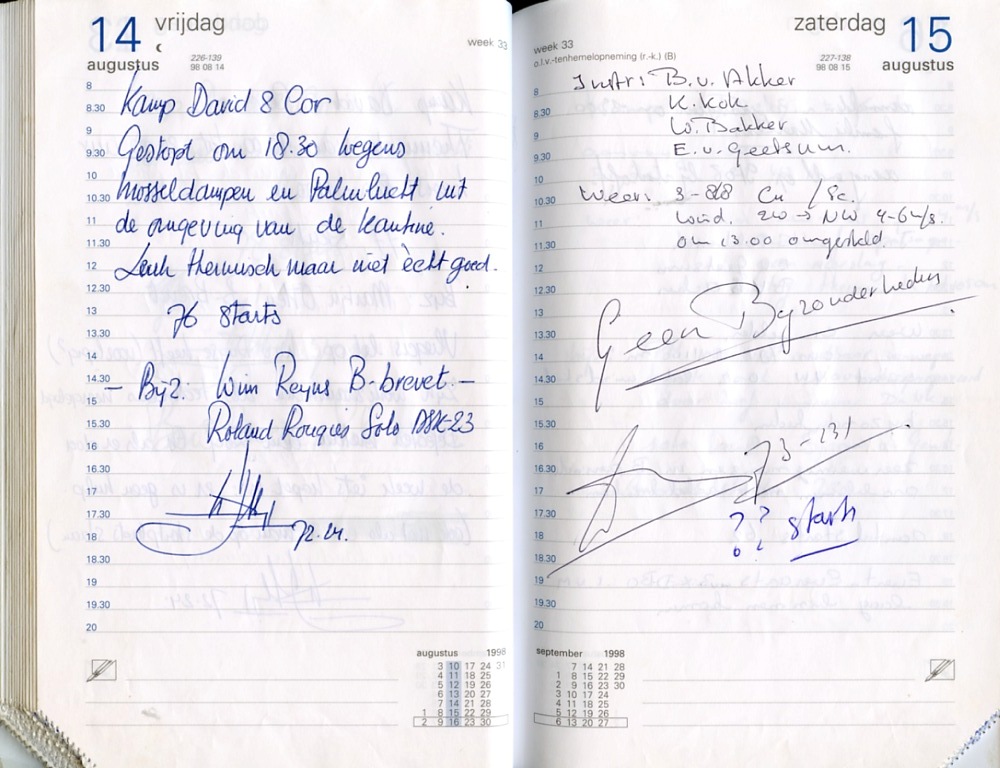 14 vrijdag
augustus
226-139
98 08 14
week 33
8
8.30
9
9.30
10
10.30
11
11.30
12
12.30
13
13.30
14
14.30
15
15.30
16
16.30
17
17.30
18
18.30
19
19.30
20
Kamp David & Cor
Gestopt om 18.30 wegens
mosseldampen en Palmlucht uit
de omgeving van de kantine.
Leuk thermisch maar niet ècht goed.
76 starts
— Bijz: Wim Reyns B-brevet. —
Roland Rougies Solo ASK-23
72.24.
augustus 1998
3 10 17 24 31
4 11 18 25
5 12 19 26
6 13 20 27
7 14 21 28
1 8 15 22 29
2 9 16 23 30
zaterdag 15
augustus
week 33
o.l.v.-tenhemelopneming (r.-k.) (B)
227-138
98 08 15
8
8.30
9
9.30
10
10.30
11
11.30
12
12.30
13
13.30
14
14.30
15
15.30
16
16.30
17
17.30
18
18.30
19
19.30
20
Instr: B. v. Akker
K. Kok
W. Bakker
E. v. Geelsum.
Weer: 3-8/8 Cu / Sc.
Wind. ZW → NW 4-6 m/s.
om 13.00 omgesteld.
Geen Byzonderheden
73-131
?? starts
september 1998
7 14 21 28
1 8 15 22 29
2 9 16 23 30
3 10 17 24
4 11 18 25
5 12 19 26
6 13 20 27